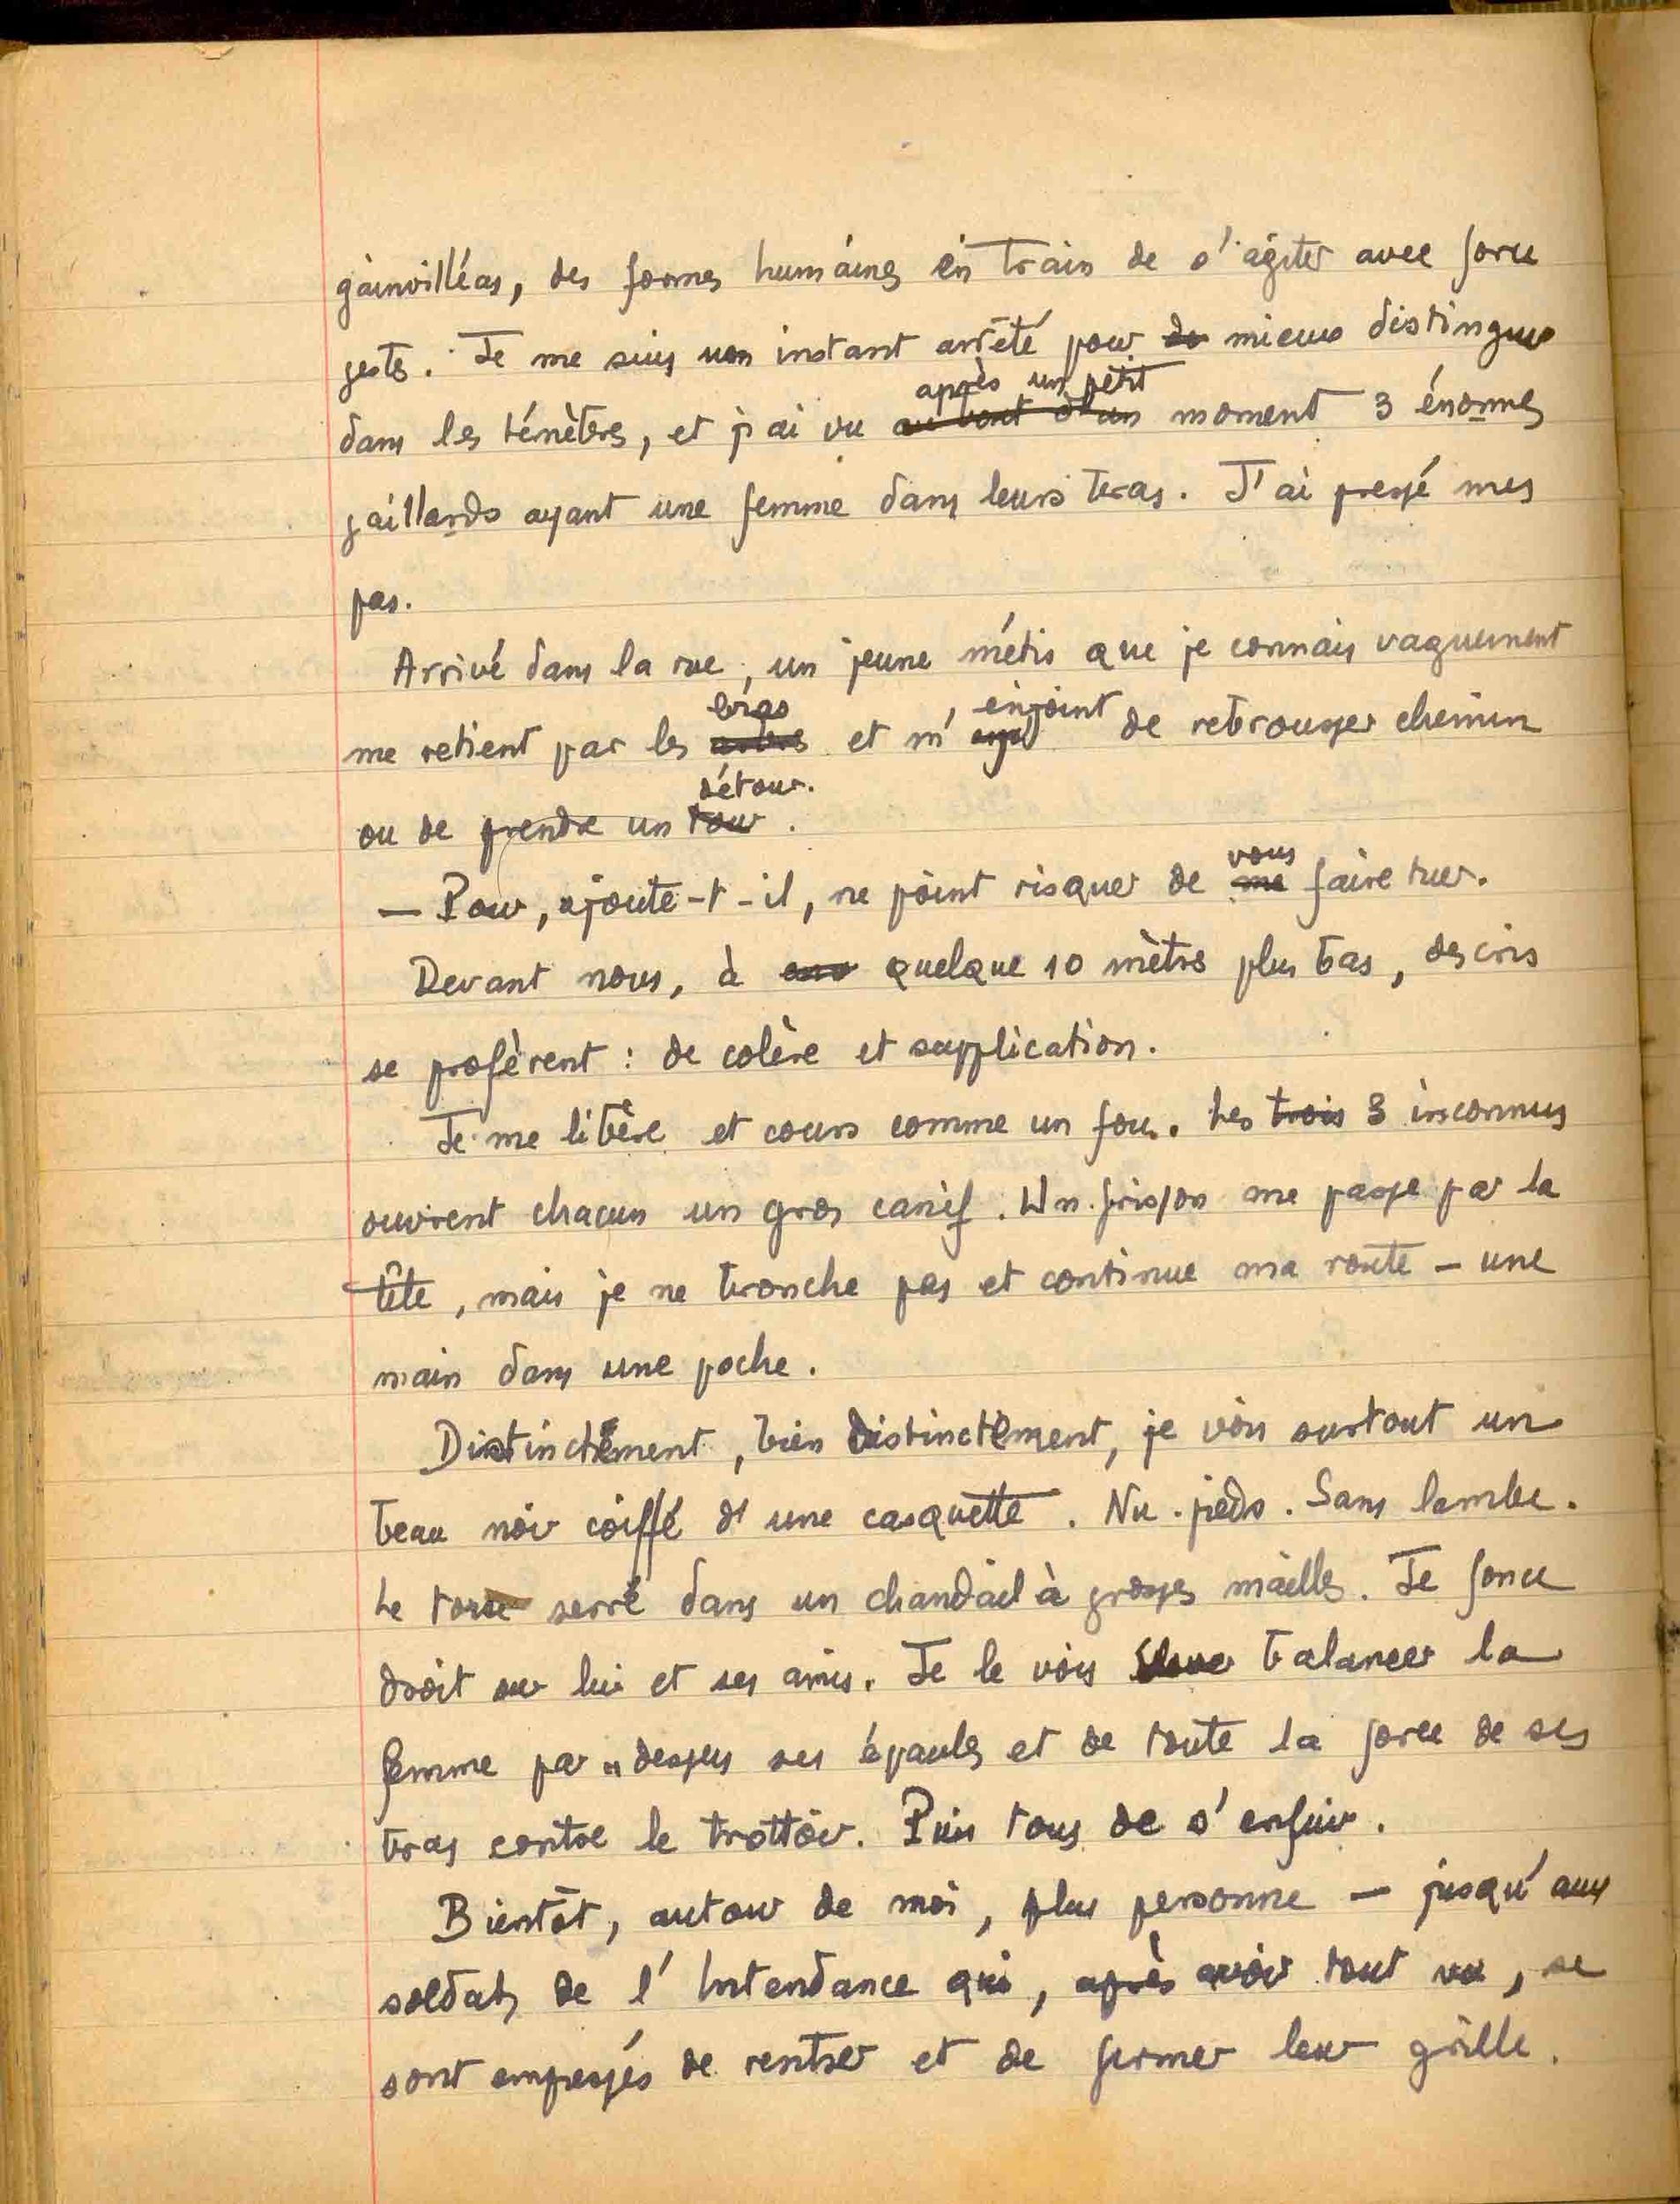 gainvilléas, des formes humaines en train de s'agiter avec force
gestes. Je me suis un instant arrêté pour de mieux distinguer
après un petit
dans les ténèbres, et j'ai vu au bout d'un moment 3 énormes
gaillards ayant une femme dans leurs bras. J'ai pressé mes
pas.
Arrivé dans la rue, un jeune métis que je connais vaguement
bras , enjoint
me retient par les et m' de rebrousser chemin
détour.
ou de prendre un tour.
vous
— Pour, ajoute-t-il, ne point risquer de me faire tuer.
Devant nous, à quelque 10 mètres plus bas, des cris
se profèrent : de colère et supplication.
Je me libère et cours comme un fou. Les trois 3 inconnus
ouvrent chacun un gros canif. Un frisson me passe par la
tête, mais je ne bronche pas et continue ma route – une
main dans une poche.
Distinctement, bien distinctement, je vois surtout un
beau noir coiffé d'une casquette. Nu-pieds. Sans lambe.
Le torse serré dans un chandail à grosses mailles. Je fonce
droit sur lui et ses amis. Je le vois balancer la
femme par-dessus ses épaules et de toute la force de ses
bras contre le trottoir. Puis tous de s'enfuir.
Bientôt, autour de moi, plus personne — jusqu'aux
soldats de l'Intendance qui, après avoir tout vu, se
sont empressés de rentrer et de fermer leur grille.